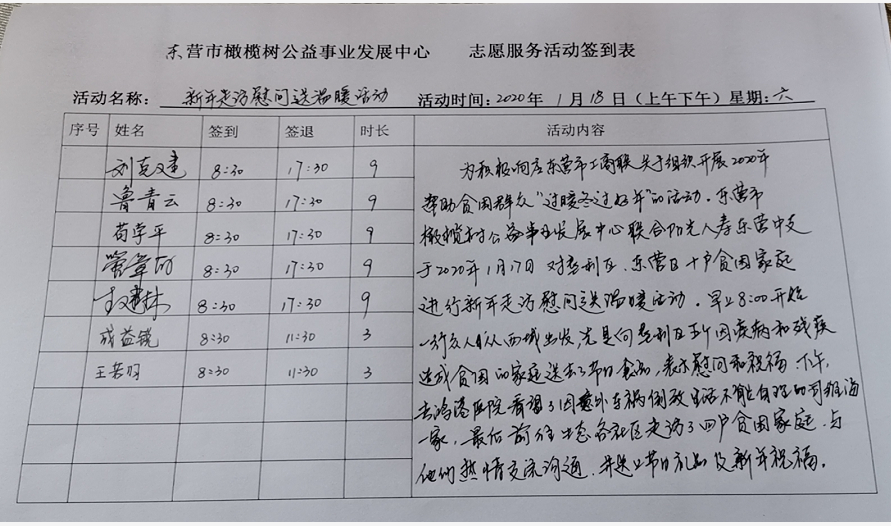 东营市橄榄树公益事业发展中心 志愿服务活动签到表
活动名称： 新年走访慰问送温暖活动 活动时间：2020年 1月 18日（上午下午）星期：六
序号 姓名 签到 签退 时长 活动内容
8:30 17:30 9
鲁青云 8:30 17:30 9
苟学平 8:30 17:30 9
8:30 17:30 9
8:30 17:30 9
成益锐 8:30 11:30 3
王若 8:30 11:30 3
为积极响应东营市工商联关于组织开展2020年
帮助贫困群众“过暖冬过好年”的活动．东营市
橄榄树公益事业发展中心联合阳光人寿东营中支
于2020年1月17日 对垦利区、东营区十户贫困家庭
进行新年走访慰问送温暖活动．早上8:00开始
一行众人们从西城出发，先是向垦利区五个因疾病和残疾
造成贫困的家庭送去了节日食品，表示慰问和祝福．下午，
去鸿港医院看望了因意外车祸倒致生活不能自理的海
一家，最后前往生态各社区走访了四户贫困家庭．与
他们热情交流沟通．并送上节日礼品及新年祝福。